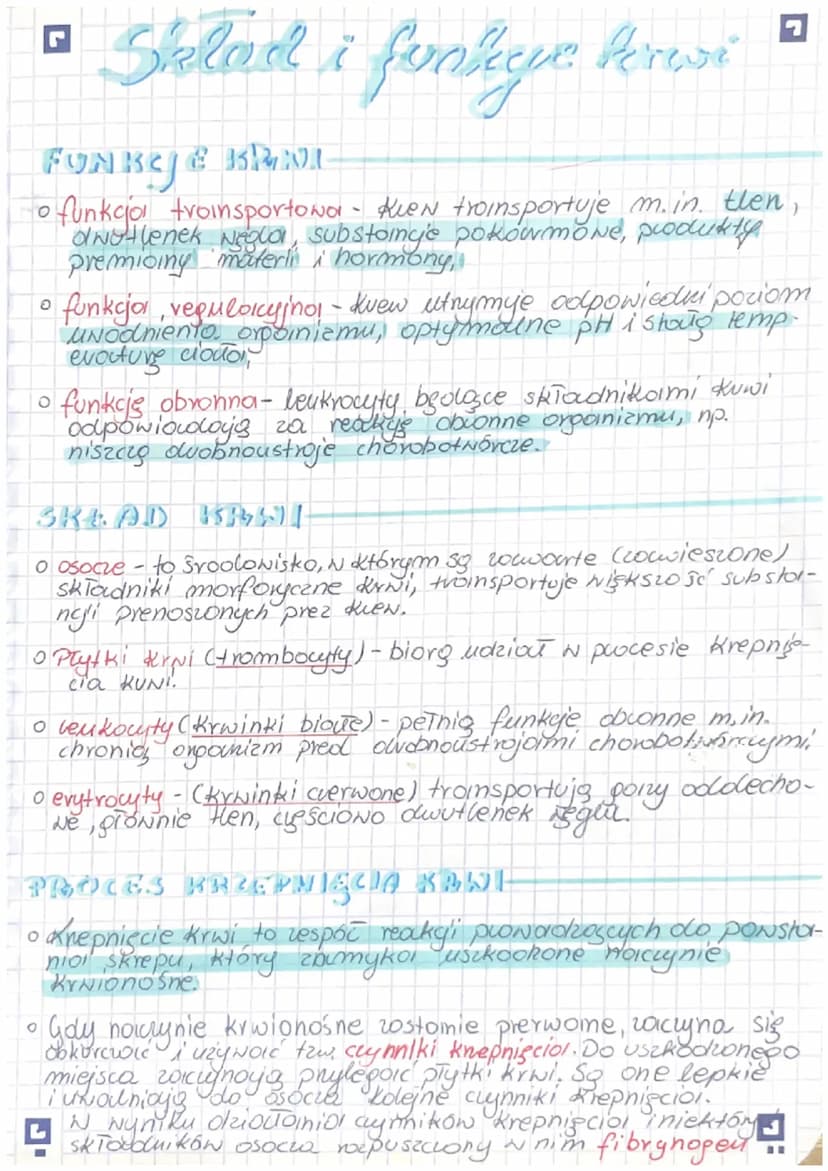 Skład i funkcje krwi
FUNKCJE KRWI
o funkcja transportowa - krew transportuje m.in. tlen,
dwutlenek węgla, substancje pokarmowe, produkty
premiany materii i hormony,
o funkcja regulacyjna - krew utrymuje odpowiedni poziom
uwodnienia organizmu, optymalne pH i stałą temp-
eraturę ciała,
o funkcję obronna - leukrocyty, będące składnikami krwi
odpowiadają za reakcje obronne organizmu, np.
niszczą drobnoustroje chorobotwórcze.
SKŁAD KRWI
o osocze - to środowisko, w którym są zawarte (zawieszone)
składniki morfotyczne krwi, transportuje większość substa-
ncji prenoszonych prez krew.
o Płytki krwi (trombocyty) - biorą udział w procesie krepnię-
cia krwi.
o leukocyty (krwinki białe) - pełnią funkcje obronne m.in.
chronią organizm pred drobnoustrojami chorobotwórczymi
o erytrocyty - (krwinki czerwone) transportują gazy oddecho-
we, głównie tlen, częściowo dwutlenek węgla.
PROCES KRZEPNIĘCIA KRWI
o Krepnięcie krwi to zespół reakcji prowadzących do powsta-
nia skrepu, który zamyka uszkodzone naczynie
krwionośne.
o Gdy naczynie krwionośne zostanie prerwane, zaczyna się
obkurczać i uzywać tzw. czynniki krepnięcia. Do uszkodzonego
miejsca zaczynają prylegać płytki krwi. Są one lepkie
i uwalniają do osocza kolejne czynniki krepnięcia.
W wyniku działania czynników krepnięcia i niektóry
składników osocza rozpuszczony w nim fibrynogen